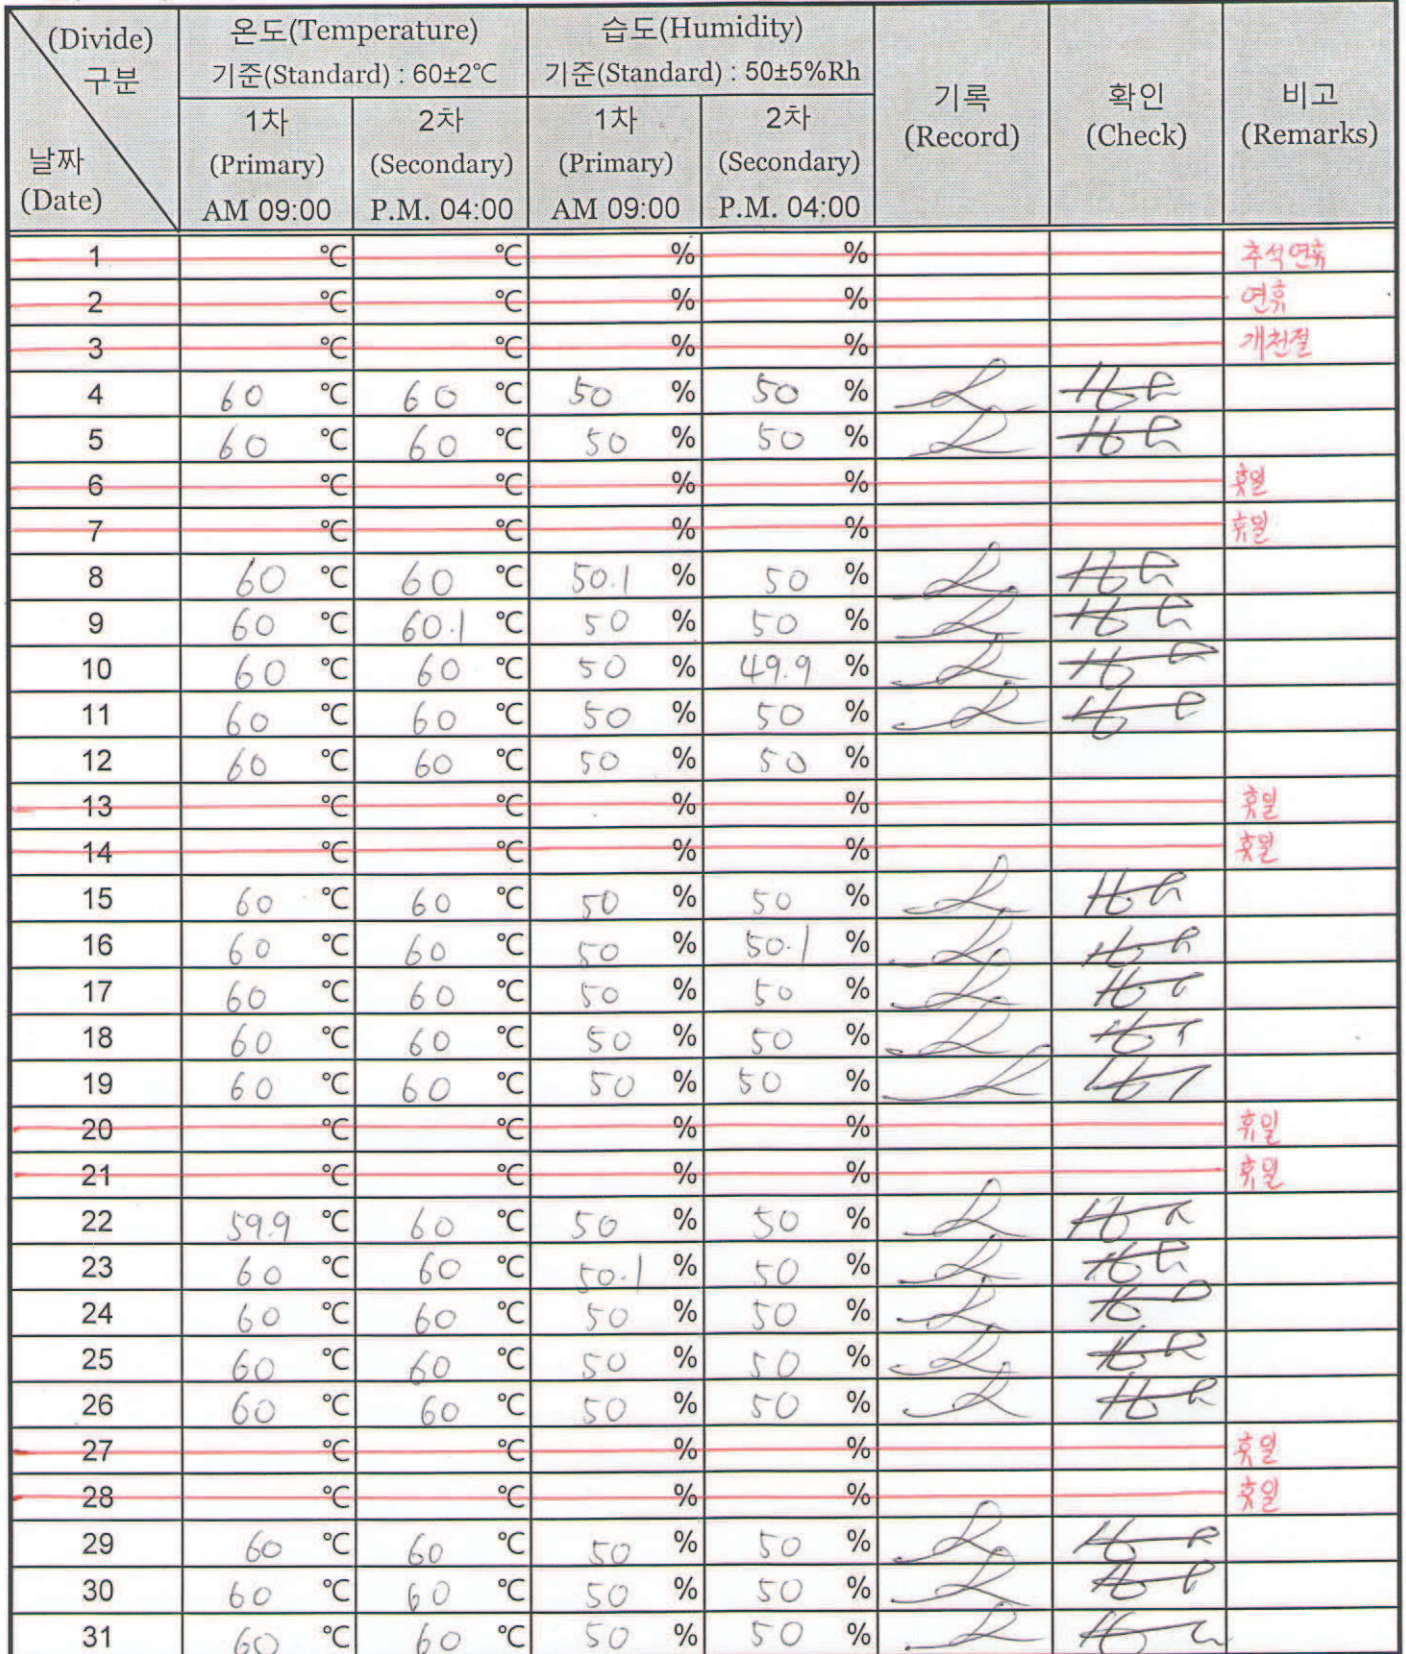 (Divide) 구분 날짜 (Date)
온도(Temperature) 습도(Humidity)
기준(Standard) : 60±2℃ 기준(Standard) : 50±5%Rh
1차 (Primary) AM 09:00
2차 (Secondary) P.M. 04:00
1차 (Primary) AM 09:00
2차 (Secondary) P.M. 04:00
기록 (Record)
확인 (Check)
비고 (Remarks)
1 ℃ ℃ % % 추석연휴
2 ℃ ℃ % % 연휴
3 ℃ ℃ % % 개천절
4 60 ℃ 60 ℃ 50 % 50 %
5 60 ℃ 60 ℃ 50 % 50 %
6 ℃ ℃ % % 휴일
7 ℃ ℃ % % 휴일
8 60 ℃ 60 ℃ 50.1 % 50 %
9 60 ℃ 60.1 ℃ 50 % 50 %
10 60 ℃ 60 ℃ 50 % 49.9 %
11 60 ℃ 60 ℃ 50 % 50 %
12 60 ℃ 60 ℃ 50 % 50 %
13 ℃ ℃ % % 휴일
14 ℃ ℃ % % 휴일
15 60 ℃ 60 ℃ 50 % 50 %
16 60 ℃ 60 ℃ 50 % 50.1 %
17 60 ℃ 60 ℃ 50 % 50 %
18 60 ℃ 60 ℃ 50 % 50 %
19 60 ℃ 60 ℃ 50 % 50 %
20 ℃ ℃ % % 휴일
21 ℃ ℃ % % 휴일
22 59.9 ℃ 60 ℃ 50 % 50 %
23 60 ℃ 60 ℃ 50.1 % 50 %
24 60 ℃ 60 ℃ 50 % 50 %
25 60 ℃ 60 ℃ 50 % 50 %
26 60 ℃ 60 ℃ 50 % 50 %
27 ℃ ℃ % % 휴일
28 ℃ ℃ % % 휴일
29 60 ℃ 60 ℃ 50 % 50 %
30 60 ℃ 60 ℃ 50 % 50 %
31 60 ℃ 60 ℃ 50 % 50 %